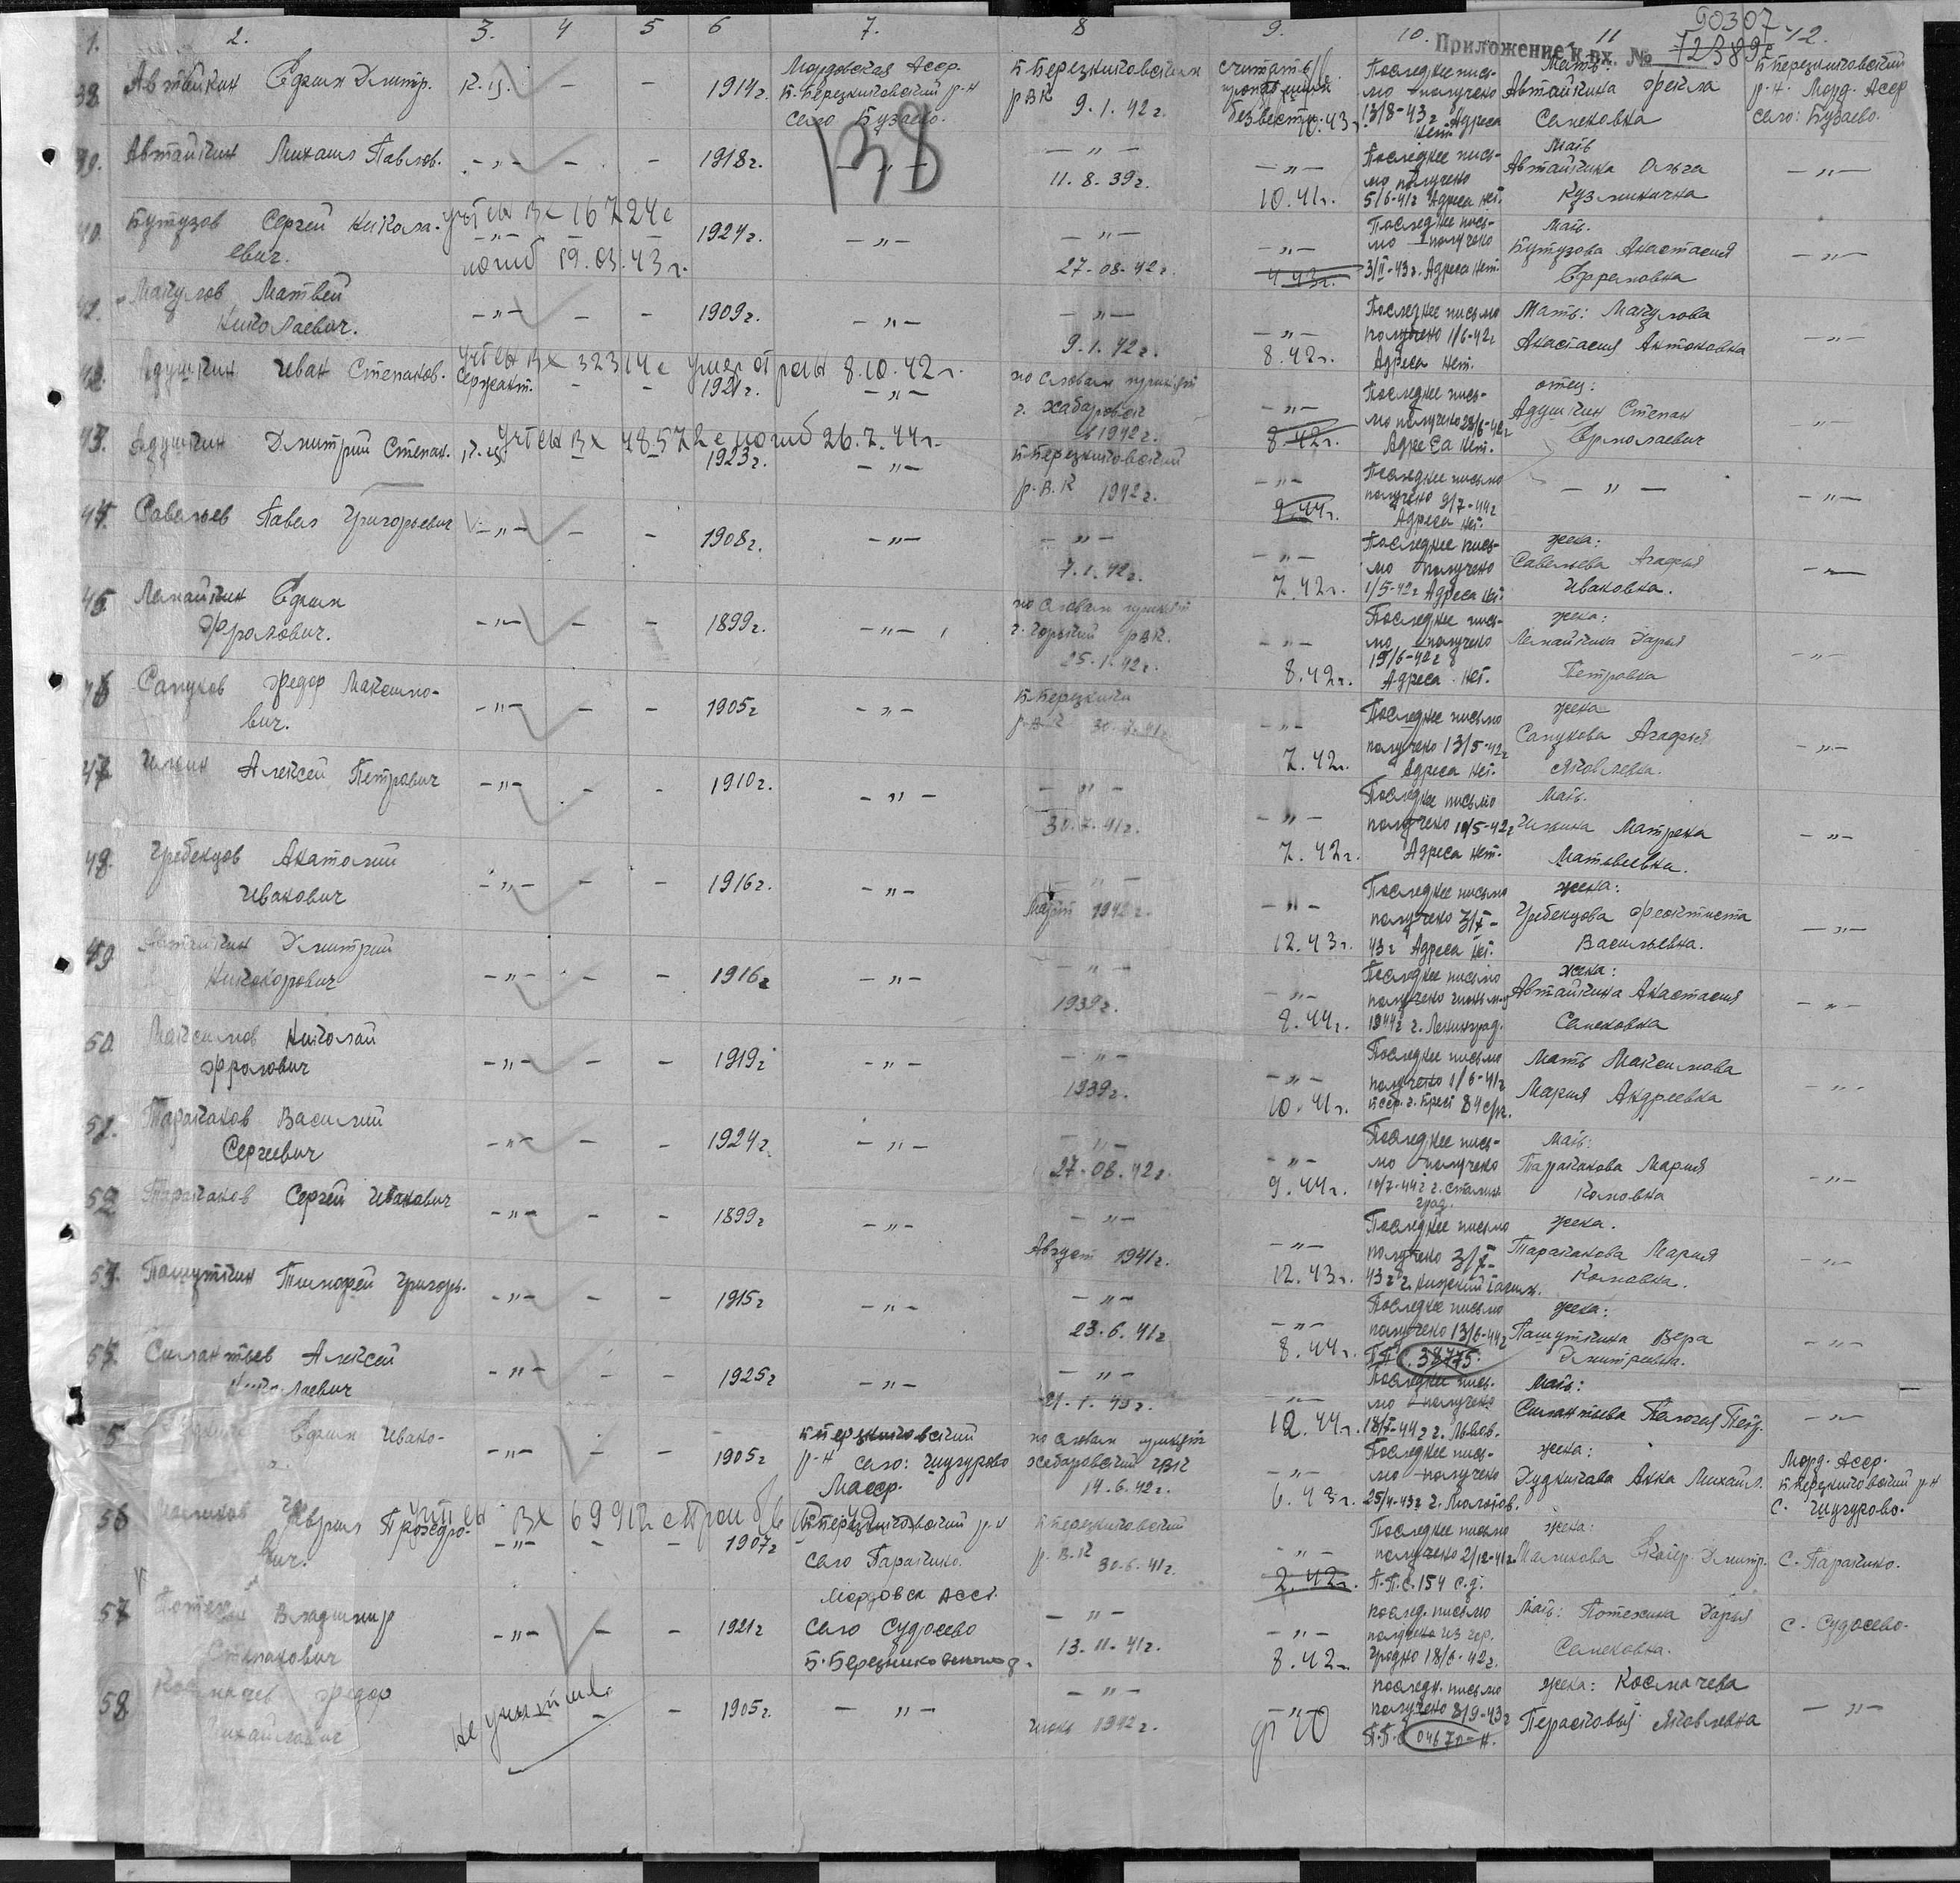 1. 2. 3. 4 5 6 7. 8 9. 10. 11 12.
90307
Приложение к вх. № 12389с
38 Автайкин Ефим Дмитр. К-ц. - - 1914г. Мордовская Асср. Б-Березниковский р-н село Бузаево. Б-Березниковский РВК 9.1.42г. считать пропавшим безвести. 10.43г. Последнее письмо получено 13/8-43г Адреса нет Мать: Автайкина Фекла Семеновна Б-Березниковский р-н. Морд. Асср село: Бузаево.
138
39. Автайкин Михаил Павлов. -"- - - 1918г. -"- -"- 11.8.39г. -"- 10.41г. Последнее письмо получено 5/6-41г Адреса нет. Мать Автайкина Ольга Кузминична -"-
40. Бутузов Сергей Николаевич. учтен Вх 16724с -"- погиб 19.03.43г. 1924г. -"- -"- 27-08-42г. -"- 4.43г. Последнее письмо получено 3/II-43г. Адреса нет. Мать. Бутузова Анастасия Ефремовна -"-
41. Мачулов Матвей Николаевич. -"- - - 1909г. -"- -"- 9.1.42г. -"- 8.42г. Последнее письмо получено 1/6-42г Адреса нет. Мать: Мачулова Анастасия Антоновна -"-
42. Адушкин Иван Степанов. учтен Вх 32314с умер от ран 8.10.42г. Сержант. - - 1921г. -"- по словам призван г. Хабаровск в 1942г. -"- 8.42г. Последнее письмо получено 28/6-42г Адреса нет. отец: Адушкин Степан Ермолаевич -"-
43. Адушкин Дмитрий Степан. К-ц учтен Вх 48572с погиб 26.7.44г. 1923г. -"- Б-Березниковский Р.В.К 1942г. -"- 9.44г. Последнее письмо получено 9/7-44г Адреса нет. -"- -"-
44. Савельев Павел Григорьевич -"- - - 1908г. -"- -"- 7.1.42г. -"- 7.42г. Последнее письмо получено 1/5-42г Адреса нет. жена: Савельева Агафья Ивановна. -"-
45 Ефим Фролович. -"- - - 1899г. -"- по словам призван г. Горький РВК. 25.1.42г. -"- 8.42г. Последнее письмо получено 19/6-42г Адреса нет. жена: Дарья Петровна -"-
46 Сапунов Федор Максимович. -"- - - 1905г -"- Б-Березники РВК 30.7.41г -"- 7.42г. Последнее письмо получено 13/5-42г Адреса нет. жена Сапунова Агафья Яковлевна. -"-
47 Илькин Алексей Петрович -"- - - 1910г. -"- -"- 30.7.41г. -"- 7.42г. Последнее письмо получено 10/5-42г Адреса нет. Мать. Илькина Матрена Матвеевна. -"-
48. Гребенцов Анатолий Иванович -"- - - 1916г. -"- -"- Март 1942г. -"- 12.43г. Последнее письмо получено 3/X-43г Адреса нет. жена: Гребенцова Феоктиста Васильевна. -"-
49 Автайкин Дмитрий Никонорович -"- - - 1916г -"- -"- 1939г. -"- 9.44г. Последнее письмо получено 1944г г. Ленинград. жена: Автайкина Анастасия Семеновна -"-
50. Максимов Николай Фролович -"- - - 1919г -"- -"- 1939г. -"- 10.41г. Последнее письмо получено 1/6-41г г. Брест 84 с/п. Мать Максимова Мария Андреевна -"-
51. Тараканов Василий Сергеевич -"- - - 1924г. -"- -"- 27-08.42г. -"- 9.44г. Последнее письмо получено 10/7-44г г. Сталинград. Мать: Тараканова Мария -"-
52 Тараканов Сергей Иванович -"- - - 1899г -"- -"- Август 1941г. -"- 12.43г. Последнее письмо получено 3/X-43г г. Нижний Тагил. жена. Тараканова Мария -"-
53. Пашуткин Тимофей Григорь. -"- - - 1915г -"- -"- 23.6.41г -"- 8.44г. Последнее письмо получено 13/6-44г П.П.С. 38775. жена: Пашуткина Вера Дмитриевна. -"-
54. Силантьев Алексей Николаевич -"- - - 1925г -"- -"- 21.1.43г. -"- 12.44г. Последнее письмо получено 18/X-44г г. Львов. Мать: Силантьева Пелогея Петр. -"-
5 Ефим Ивано- -"- - - 1905г Б-Березниковский р-н село: Чиугурово Масср. по словам призван Хабаровский ГВК 14.6.42г. -"- 6.43г. Последнее письмо получено 25/4-43г г. Молотов. жена: Анна Михайл. Морд. Асср. Б-Березниковский р-н с. Чиугурово.
56 Маликов учтен Вх 69912с -"- - - 1907г Б-Березниковский р-н село Паракино. Б-Березниковский Р.В.К 30.6.41г. -"- 2.42г. Последнее письмо получено 2/12-41г. П.П.С. 154 с.д. жена: Маликова Екатер. Дмитр. с. Паракино.
57 Владимир Степанович -"- - - 1921г Мордовск АССР. Село Судосево Б.Березниковского р. -"- 13-11-41г. -"- 8.42г Послед. письмо получено из гор. Гродно 18/6-42г. Мать: Потехина Дарья Семеновна. с. Судосево.
58. Космачев Федор Михайлович не учитыв. - - 1905г. -"- -"- июнь 1942г. -"- Последн. письмо получено 8/9-43г П.П.С 04670-н. жена: Космачева Перасковья Яковлевна -"-